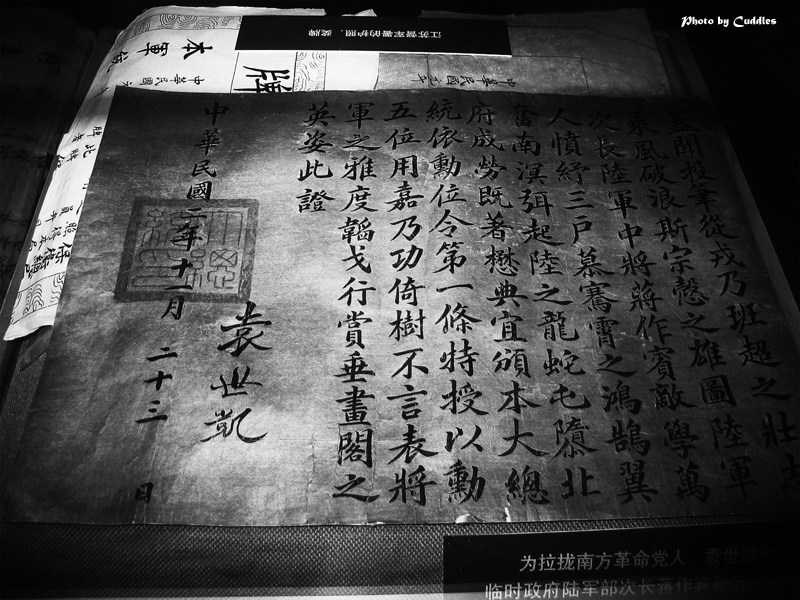 Photo by Cuddles
江苏督军署的护照、奖牌
本軍
牌
中華民國
中華民國五年
蓋聞投筆從戎乃班超之壯志
乘風破浪斯宗慤之雄圖陸軍
次長陸軍中將蔣作賓敵學萬
人憤紓三戶慕騫霄之鴻鵠翼
奮南溟弭起陸之龍蛇屯隳北
府成勞既著懋典宜頒本大總
統依勳位令第一條特授以勳
五位用嘉乃功倚樹不言表將
軍之雅度韜戈行賞垂畫閣之
英姿此證
中華民國二年十一月二十三日
袁世凱
为拉拢南方革命党人，袁世凯
临时政府陆军部次长蒋作宾